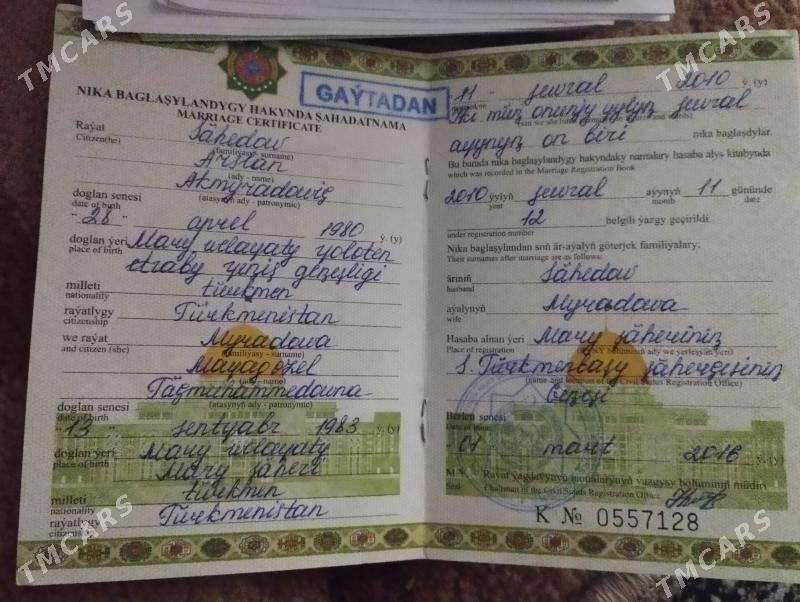 NIKA BAGLAŞYLANDYGY HAKYNDA ŞAHADATNAMA
MARRIAGE CERTIFICATE
GAÝTADAN
Raýat Sähedow
Citizen(he) (familiýasy - surname)
Arslan
(ady - name)
Akmyradowiç
(atasynyň ady - patronymic)
doglan senesi
date of birth
"28" aprel 1980 ý. (y)
doglan ýeri Mary welaýaty Ýolöten
place of birth
etraby Ýeňiş geňeşligi
milleti türkmen
nationality
raýatlygy Türkmenistan
citizenship
we raýat Myradowa
and citizen (she) (familiýasy - surname)
Maýagözel
(ady - name)
Täçmuhammedowna
(atasynyň ady - patronymic)
doglan senesi
date of birth
"13" sentýabr 1983 ý. (y)
doglan ýeri Mary welaýaty
place of birth
Mary şäheri
milleti türkmen
nationality
raýatlygy Türkmenistan
citizenship
"11" fewral 2010 ý. (y)
Iki müň onunjy ýylyň fewral
aýynyň on biri nika baglaşdylar.
Bu barada nika baglaşylandygy hakyndaky namalary hasaba alyş kitabynda
which was recorded in the Marriage Registration Book
2010 ýylyň fewral aýynyň 11 gününde
year month date
12 belgili ýazgy geçirildi.
under registration number
Nika baglaşylandan soň är-aýalyň göterjek familiýalary:
Their surnames after marriage are as follows:
äriniň Sähedow
husband
aýalynyň Myradowa
wife
Hasaba alnan ýeri Mary şäheriniň
Place of registration (RÝNÝ bölüminiň ady we ýerleşýän ýeri)
S.Türkmenbaşy şäherçesiniň
(name and location of the Civil Status Registration Office)
geňeşi
Berlen senesi
Date of issue
"01" mart 2016 ý. (y)
M.Ý. Raýat ýagdaýynyň namalarynyň ýazgysy bölüminiň müdiri
Seal Chairman of the Civil Status Registration Office
K № 0557128
TMCARS
TMCARS
TMCARS
TMCARS